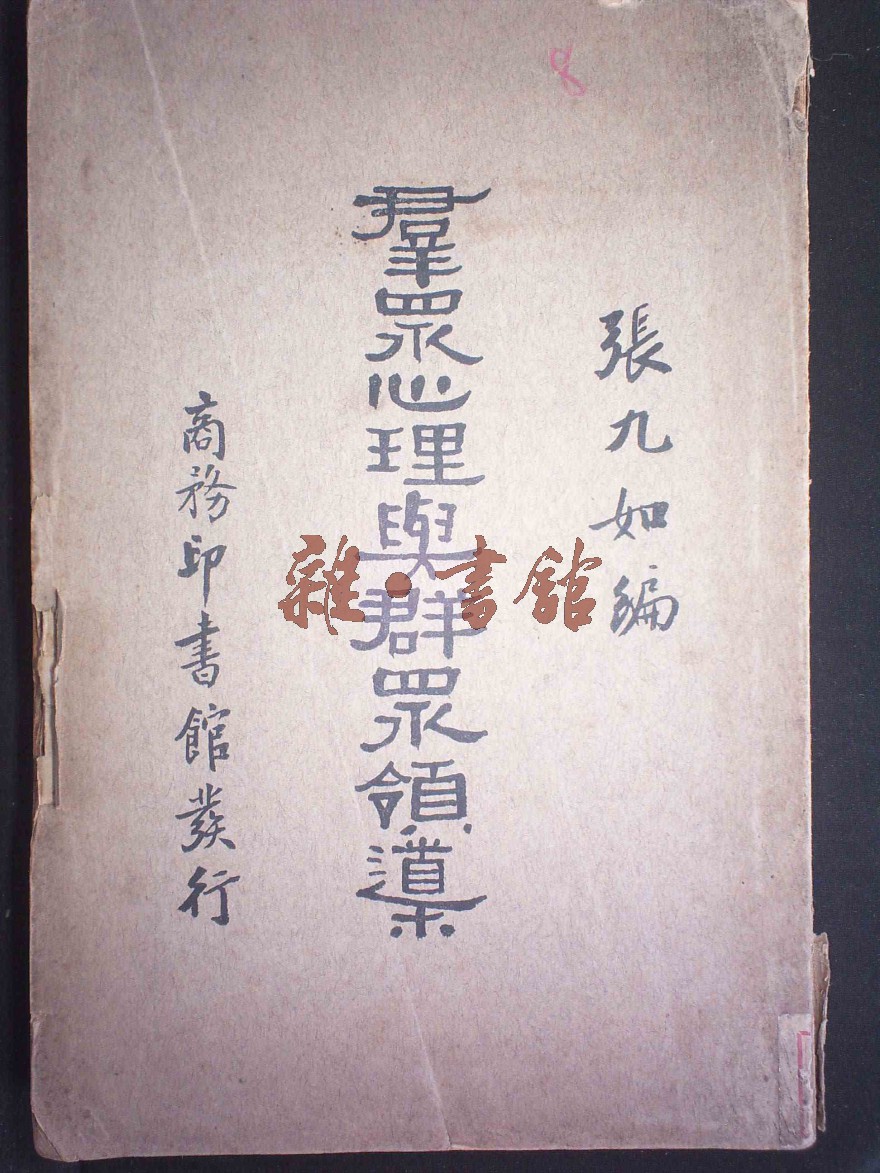 張九如編
羣眾心理與群眾領導
商務印書館發行
雜·書館
8